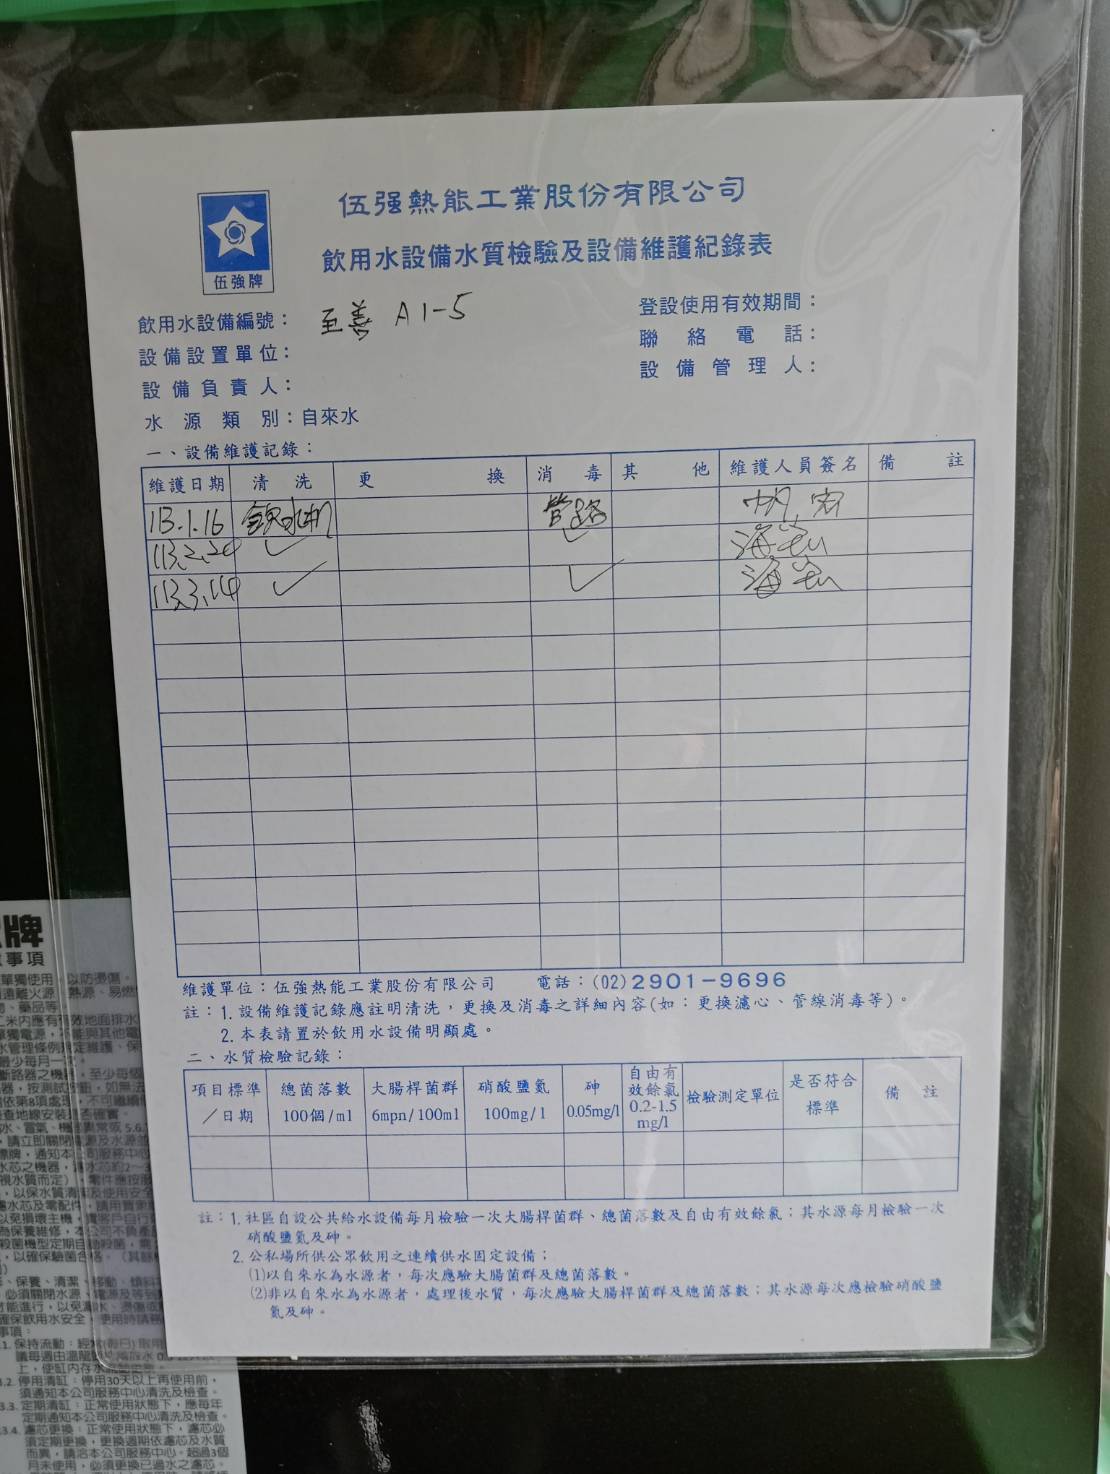 伍强熱能工業股份有限公司
飲用水設備水質檢驗及設備維護紀錄表
伍強牌
飲用水設備編號： 至善 A1-5
登設使用有效期間：
設備設置單位：
聯絡電話：
設備負責人：
設備管理人：
水源類別：自來水
一、設備維護記錄：
維護日期 清洗 更換 消毒 其他 維護人員簽名 備註
113.1.16 飲水机 管路
113.2.20 ✓ ✓
113.3.14 ✓ ✓
維護單位：伍強熱能工業股份有限公司 電話：(02)2901-9696
註：1. 設備維護記錄應註明清洗，更換及消毒之詳細內容(如：更換濾心、管線消毒等)。
2. 本表請置於飲用水設備明顯處。
二、水質檢驗記錄：
項目標準／日期 總菌落數100個/ml 大腸桿菌群6mpn/100ml 硝酸鹽氮100mg/l 砷0.05mg/l 自由有效餘氯0.2-1.5mg/l 檢驗測定單位 是否符合標準 備註
註：1. 社區自設公共給水設備每月檢驗一次大腸桿菌群、總菌落數及自由有效餘氯；其水源每月檢驗一次
硝酸鹽氮及砷。
2. 公私場所供公眾飲用之連續供水固定設備；
(1)以自來水為水源者，每次應驗大腸菌群及總菌落數。
(2)非以自來水為水源者，處理後水質，每次應驗大腸桿菌群及總菌落數；其水源每次應檢驗硝酸鹽
氮及砷。
牌
事項
單獨使用，以防燙傷。
上，使缸内存水
3.2. 停用清缸：停用30天以上再使用前，
須通知本公司服務中心清洗及檢查。
3.3. 定期清缸：正常使用狀態下，應每年
定期通知本公司服務中心清洗及檢查。
3.4. 濾芯更換：正常使用狀態下，濾芯必
須定期更換，更換週期依濾芯及水質
而異，請洽本公司服務中心。超過3個
月未使用，必須更換已過水之濾芯。